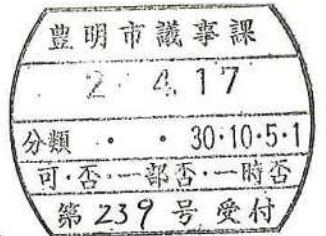 豊明市議事課
2. 4. 17
分類 ・ ・ 30・10・5・1
可・否・一部否・一時否
第239号受付